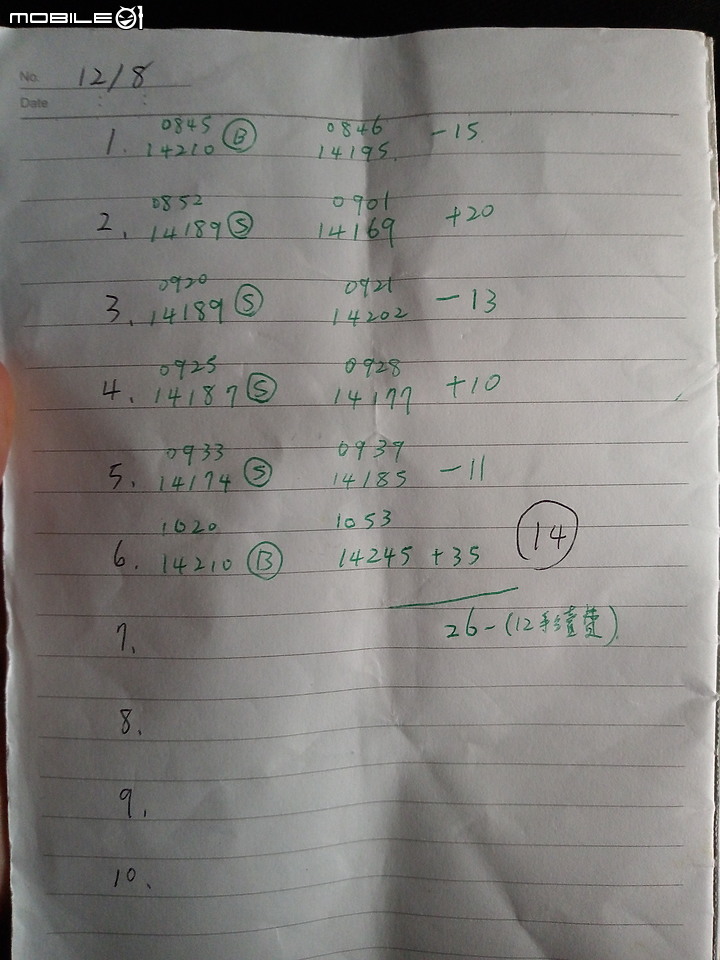 MOBILE01
No. 12/8
Date : :
0845 0846
1. 14210 Ⓑ 14195. -15
0852 0901
2. 14189 Ⓢ 14169 +20
0920 0921
3. 14189 Ⓢ 14202 -13
0925 0928
4. 14187 Ⓢ 14177 +10
0933 0939
5. 14174 Ⓢ 14185 -11
1020 1053
6. 14210 Ⓑ 14245 +35 14
7. 26-(12手續費)
8.
9.
10.